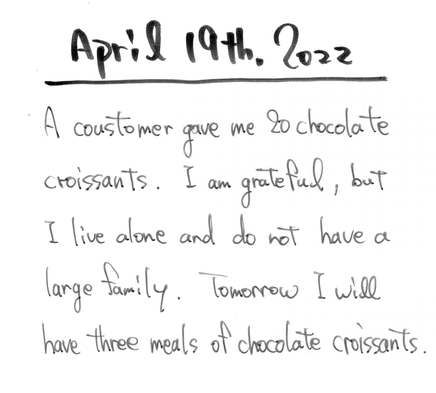 April 19th. 2022
A coustomer gave me 20 chocolate
croissants. I am grateful, but
I live alone and do not have a
large family. Tomorrow I will
have three meals of chocolate croissants.